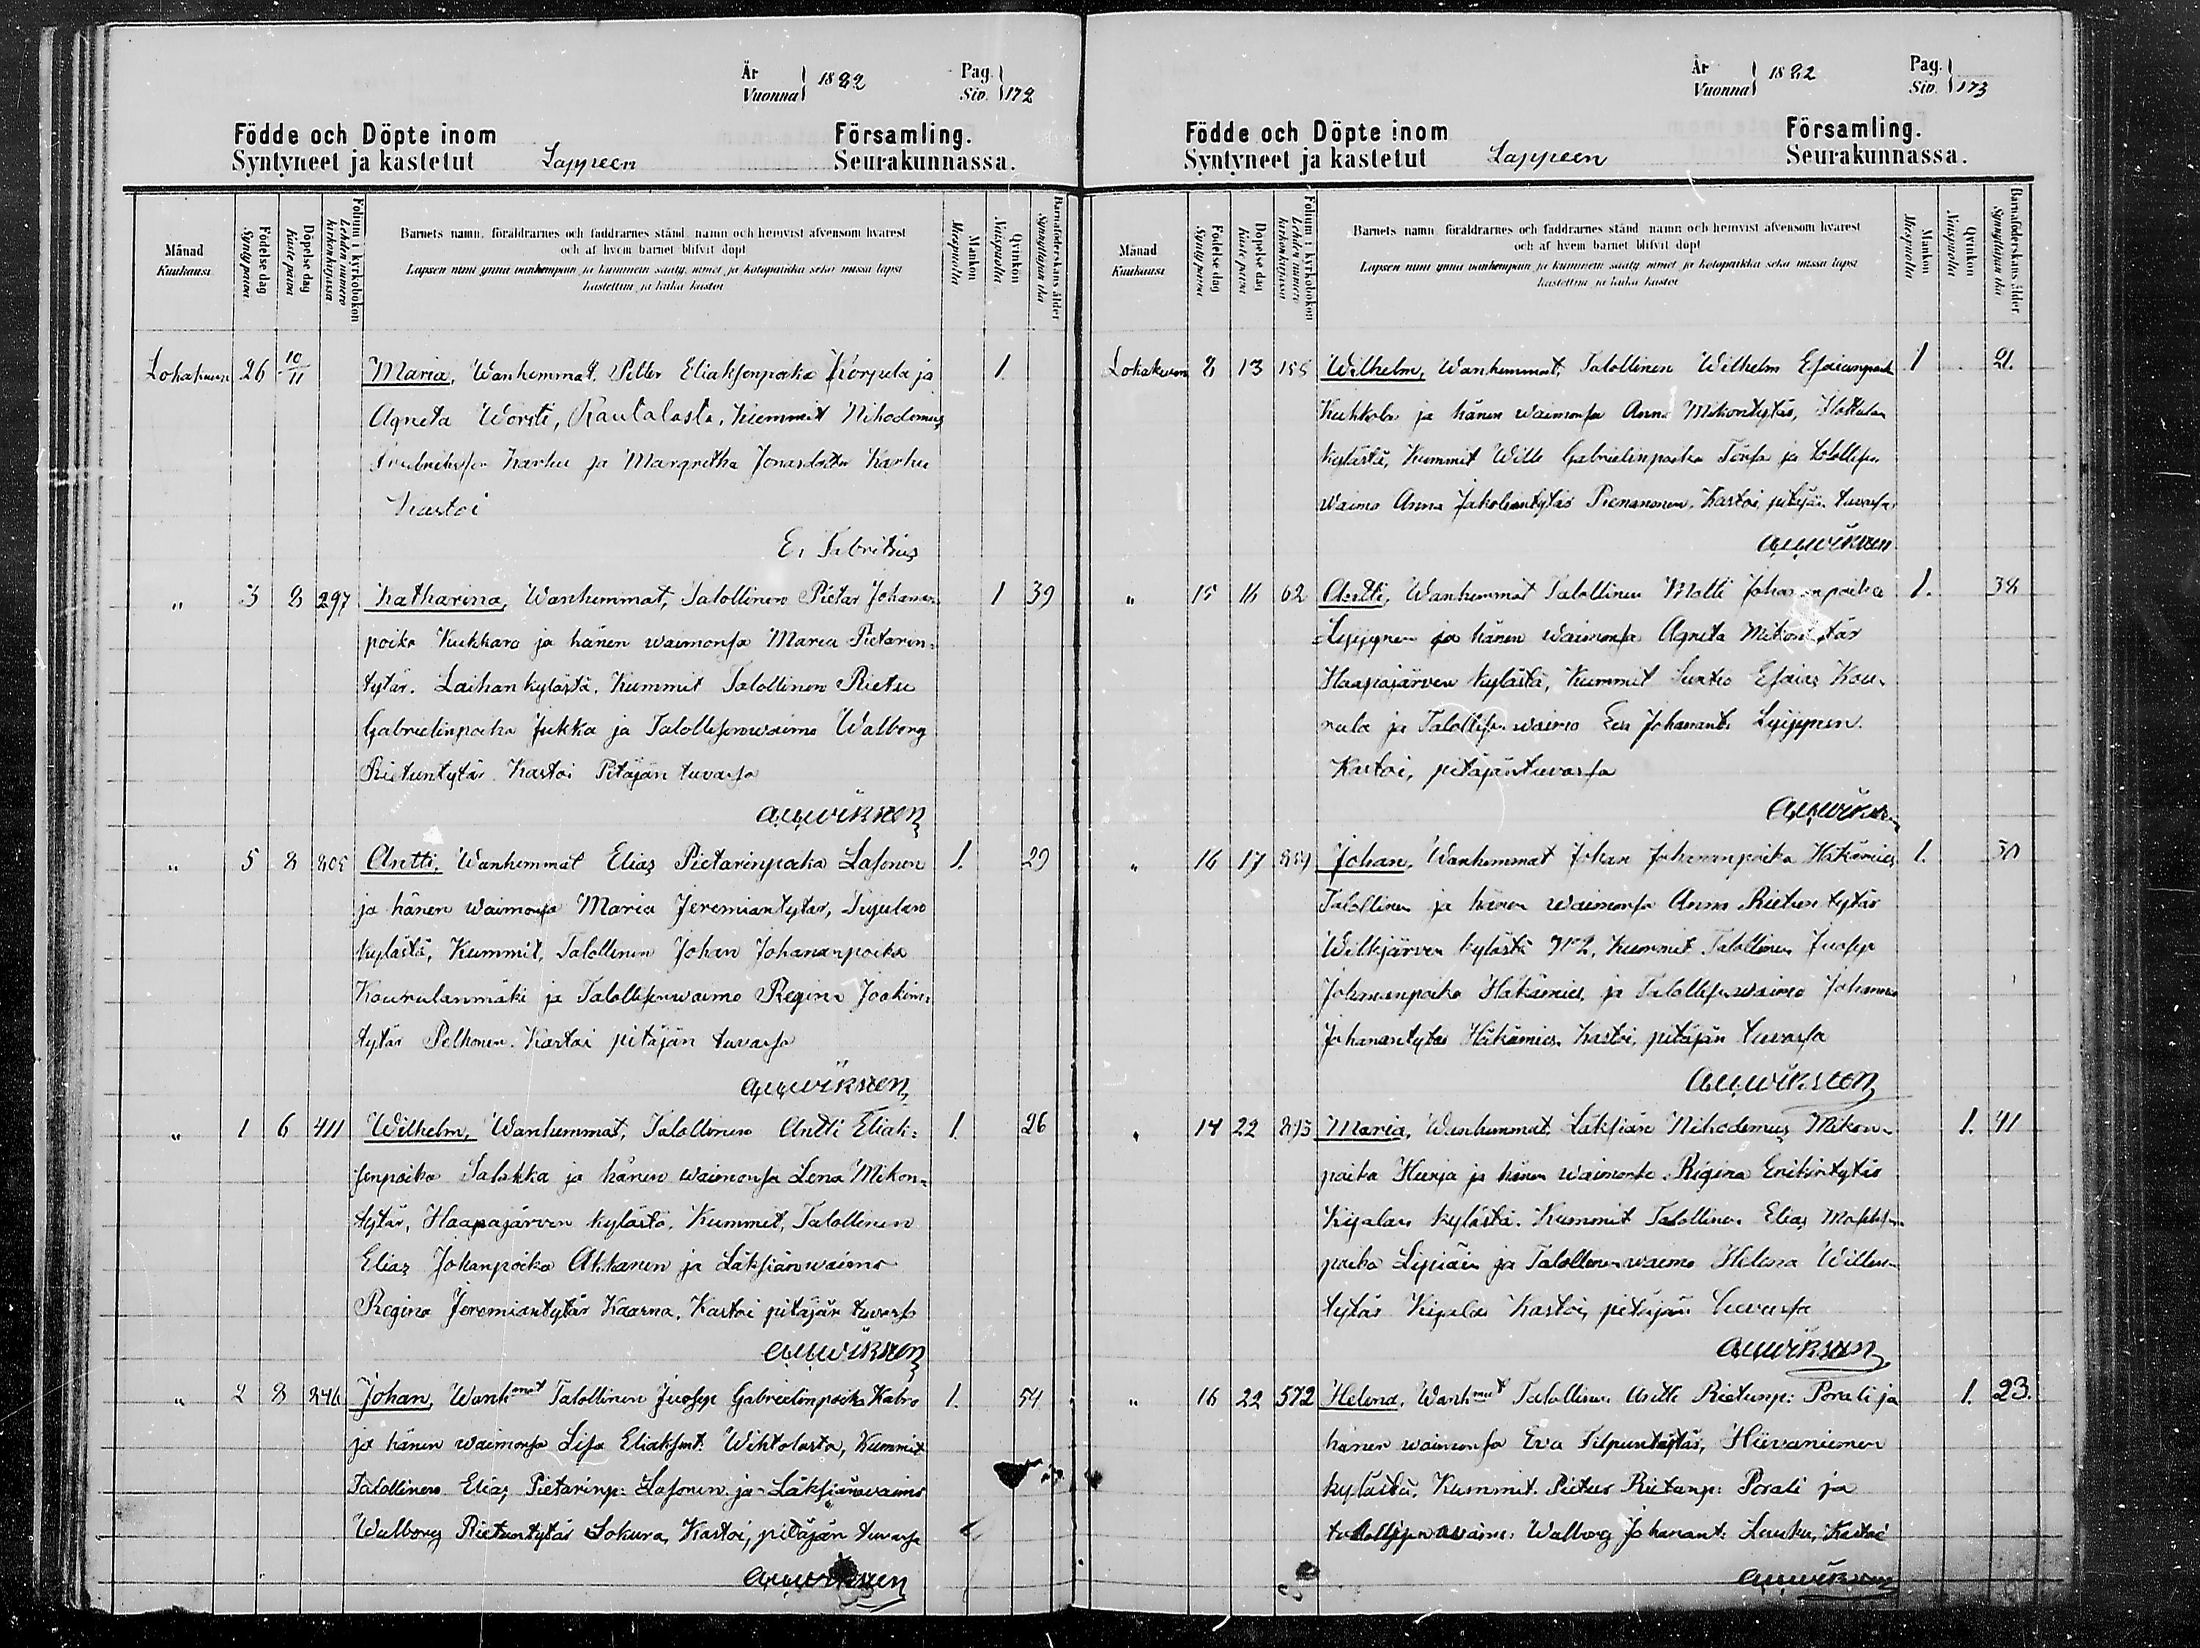 År
Vuonna
1882
Pag.
Siv.
172
Födde och Döpte inom Församling.
Syntyneet ja kastetut Lappeen Seurakunnassa.
Månad
Kuukausi
Födelse dag
Synty päivä
Döpelse dag
Kaste päivä
Folium i kyrkoboken
Lehden numero kirkonkirjassa
Barnets namn, föräldrarnes och faddrarnes stånd, namn och hemvist äfvensom hvarest
och af hvem barnet blifvit döpt
Lapsen nimi ynnä vanhempain ja kummein sääty, nimet ja kotopaikka sekä missä lapsi
kastettiin ja kuka kastoi
Mankön
Miespuolta
Qvinkön
Naispuolta
Barnaföderskans ålder
Synnyttäjän ikä
Lokakuun 26 10/11 Maria, Wanhemmat, Petter Eliaksenpoika Korpela ja 1.
Agneta Worsti, Rautalasta, Kummit Nikodemus
Karhu ja Margretha Jonasdotter Karhu
Kastoi
E. Fabritius
" 3 8 297 Katharina, Wanhemmat, Talollinen Pietar Johanan= 1 39
poika Kukkaro ja hänen waimonsa Maria Pietarin=
tytär. Laihan kylästä. Kummit Talollinen Rietu
Gabrielinpoika Jukka ja Talollisenwaimo Walborg
Rietuntytär Kastoi Pitäjän tuvassa
" 5 8 805 Antti, Wanhemmat Elias Pietarinpoika Lasonen 1. 29
ja hänen waimonsa Maria Jeremiantytär,
kylästä, Kummit, Talollinen Johan Johananpoika
Kourulanmäki ja Talollisenwaimo Regina Joakim=
tytär Pelkonen. Kastoi pitäjän tuvassa
" 1 6 411 Wilhelm, Wanhemmat, Talollinen Antti Eliak= 1. 26
senpoika Salakka ja hänen waimonsa Lena Mikon=
tytär, Haapajärven kylästä. Kummit, Talollinen
Elias Johanpoika Akkanen ja Läksiänwaimo
Regina Jeremiantytär Kaarna. Kastoi pitäjän tuvassa
" 2 8 246 Johan, Wanhmat Talollinen Juosep Gabrielinpoika Kabro 1. 54
ja hänen waimonsa Lisa Eliaksent: Wihtolasta, Kummit
Talollinen Elias Pietarinp: Lasonen ja Läksiänwaimo
Walborg Rietuntytär Sokura, Kastoi, pitäjän tuvassa
År
Vuonna
1882
Pag.
Siv.
173
Födde och Döpte inom Församling.
Syntyneet ja kastetut Lappeen Seurakunnassa.
Månad
Kuukausi
Födelse dag
Synty päivä
Döpelse dag
Kaste päivä
Folium i kyrkoboken
Lehden numero kirkonkirjassa
Barnets namn, föräldrarnes och faddrarnes stånd, namn och hemvist äfvensom hvarest
och af hvem barnet blifvit döpt
Lapsen nimi ynnä vanhempain ja kummein sääty, nimet ja kotopaikka sekä missä lapsi
kastettiin ja kuka kastoi
Mankön
Miespuolta
Qvinkön
Naispuolta
Barnaföderskans ålder
Synnyttäjän ikä
Lokakuun 8 13 155 Wilhelm, Wanhemmat, Talollinen Wilhelm Esaianpoika 1 21.
ja hänen waimonsa Anna Mikontytär,
kylästä, Kummit Wille Gabrielinpoika ja Talollisen
waimo Anna Jakobintytär. Kastoi pitäjän tuvassa.
" 15 16 62 Antti, Wanhemmat Talollinen Matti Johananpoika 1. 38
Lyijynen ja hänen waimonsa Agneta Mikontytär
Haapajärven kylästä, Kummit Suntio Esaias Kou=
rula ja Talollisenwaimo Eva Johanant: Lyijynen.
Kastoi, pitäjäntuvassa
" 16 17 Johan, Wanhemmat Johan Johananpoika Häkämies 1.
Talollinen ja hänen waimonsa Anna Rietun tytär
Wilkjärven kylästä No 2, Kummit Talollinen Juosep
Johananpoika Häkämies, ja Talollisenwaimo Johanna
Johanantytär Häkämies. Kastoi, pitäjän tuvassa
" 14 22 Maria, Wanhemmat, Läksiäin Nikodemus Mikon= 1. 41
poika Hurja ja hänen waimonsa Regina Erikintytär
kylästä. Kummit Talollinen Elias
poika Lipiäin ja Talollisenwaimo Helena Willen=
tytär Kastoi, pitäjän tuvassa
" 16 22 572 Helena, Wanhmat Talollinen Antti Rietunp: Porali ja 1. 23.
hänen waimonsa Eva Filpuntytär, Hiivaniemen
kylästä, Kummit. Pietar Rietunp: Porali ja
talollisenwaimo: Walborg Johanant: Kastoi